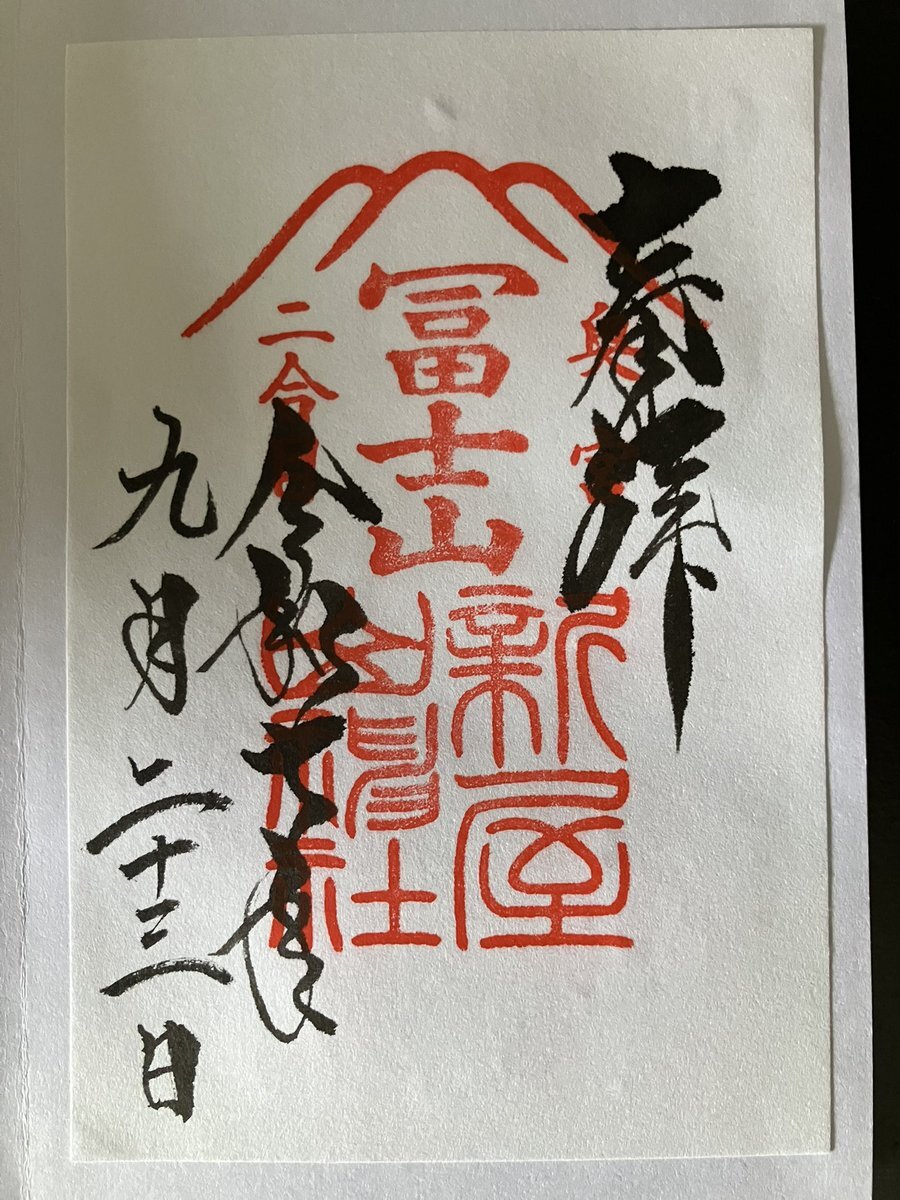 奉拝
奥宮
冨士山
二合目
新屋
山神社
令和七年
九月二十三日